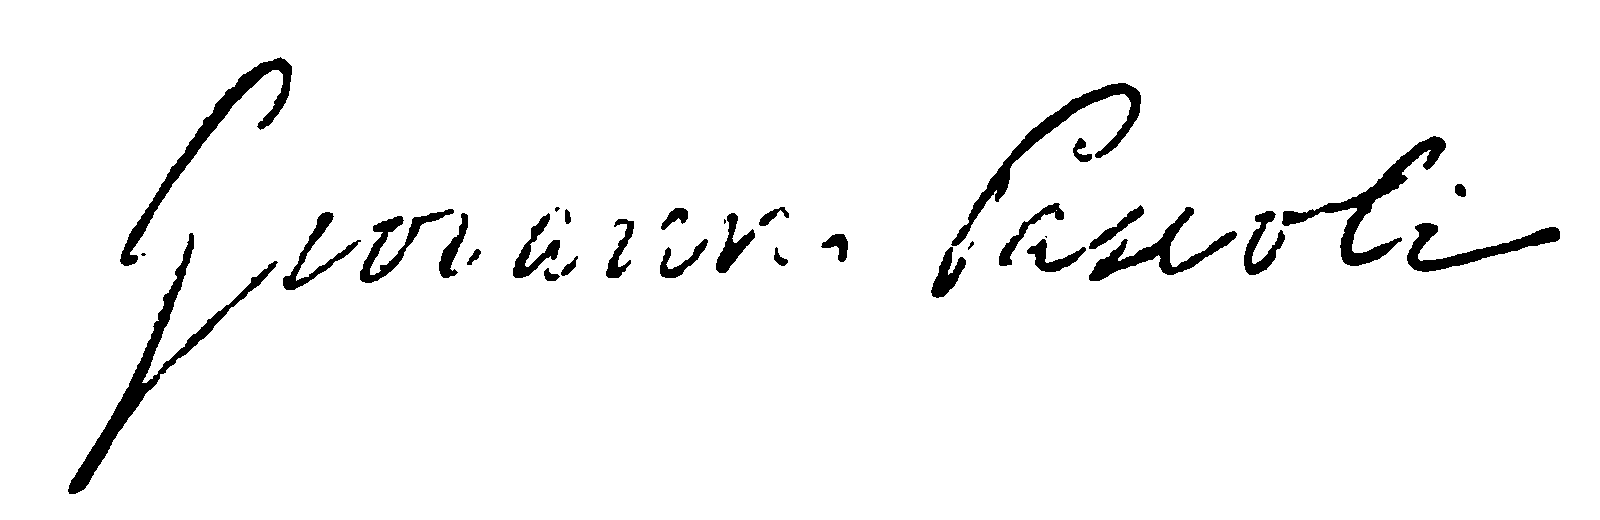 Giovanni Pascoli